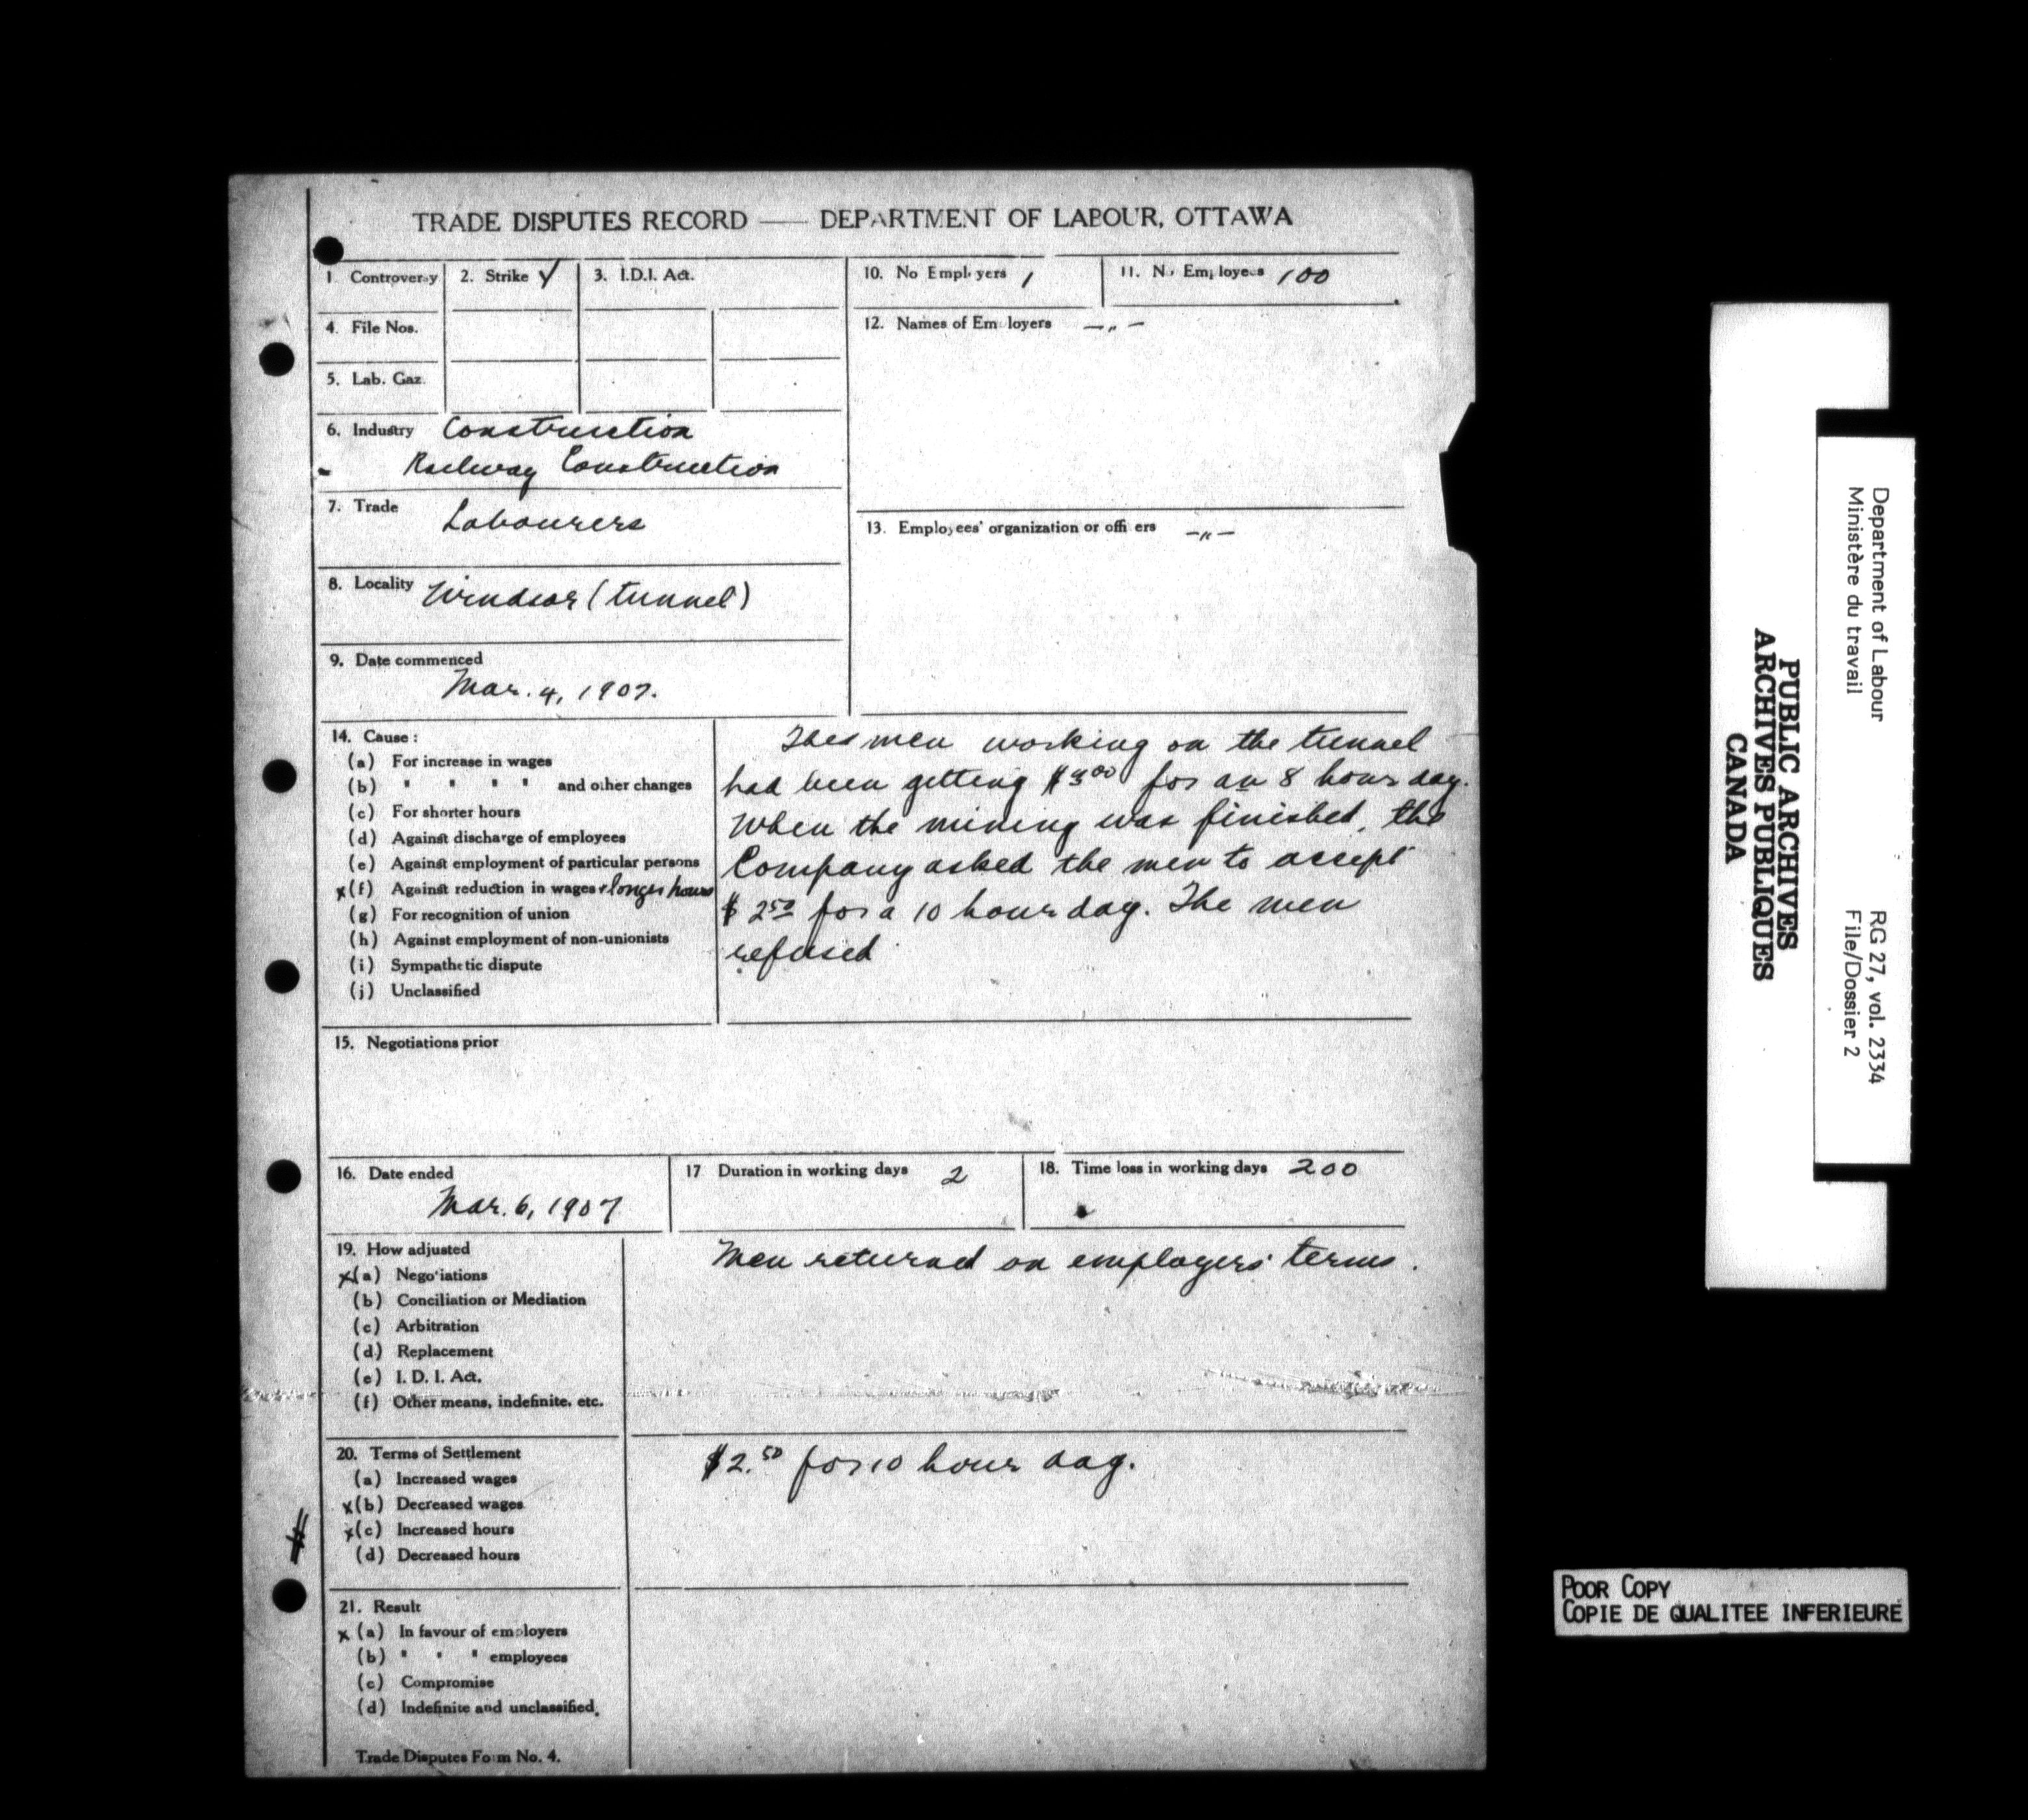 TRADE DISPUTES RECORD —— DEPARTMENT OF LABOUR, OTTAWA
1. Controversy
2. Strike ✓
3. I.D.I. Act.
4. File Nos.
5. Lab. Gaz.
6. Industry Construction
Railway Construction
7. Trade Labourers
8. Locality Windsor (tunnel)
9. Date commenced
Mar. 4, 1907.
10. No Employers 1
11. No Employees 100
12. Names of Employers —"—
13. Employees' organization or officers —"—
14. Cause :
(a) For increase in wages
(b) " " " " and other changes
(c) For shorter hours
(d) Against discharge of employees
(e) Against employment of particular persons
x (f) Against reduction in wages + longer hours
(g) For recognition of union
(h) Against employment of non-unionists
(i) Sympathetic dispute
(j) Unclassified
The men working on the tunnel
had been getting for an 8 hour day.
When the mining was finished, the
Company asked the men to accept
$2.50 for a 10 hour day. The men
refused
15. Negotiations prior
16. Date ended
Mar. 6, 1907
17 Duration in working days 2
18. Time loss in working days 200
19. How adjusted
x (a) Negotiations
(b) Conciliation or Mediation
(c) Arbitration
(d) Replacement
(e) I. D. I. Act.
(f) Other means, indefinite, etc.
Men returned on employers' terms.
20. Terms of Settlement
(a) Increased wages
x (b) Decreased wages
x (c) Increased hours
(d) Decreased hours
$2.50 for 10 hour day.
#
21. Result
x (a) In favour of employers
(b) " " " employees
(c) Compromise
(d) Indefinite and unclassified.
Trade Disputes Form No. 4.
PUBLIC ARCHIVES
ARCHIVES PUBLIQUES
CANADA
Department of Labour
Ministère du travail
RG 27, vol. 2334
File/Dossier 2
POOR COPY
COPIE DE QUALITEE INFERIEURE